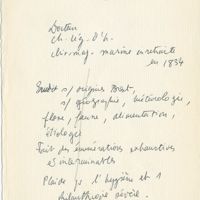 Docteur
Ch. Lég. d'h.
Chir. maj. marine en retraite
en 1834
Erudit s/ origines Brest,
s/ géographie, météorologie,
flore, faune, alimentation,
étiologie
Fait des énumérations exhaustives
et interminables
Plaide p. l'hygiène et 1
philanthropie sévère.